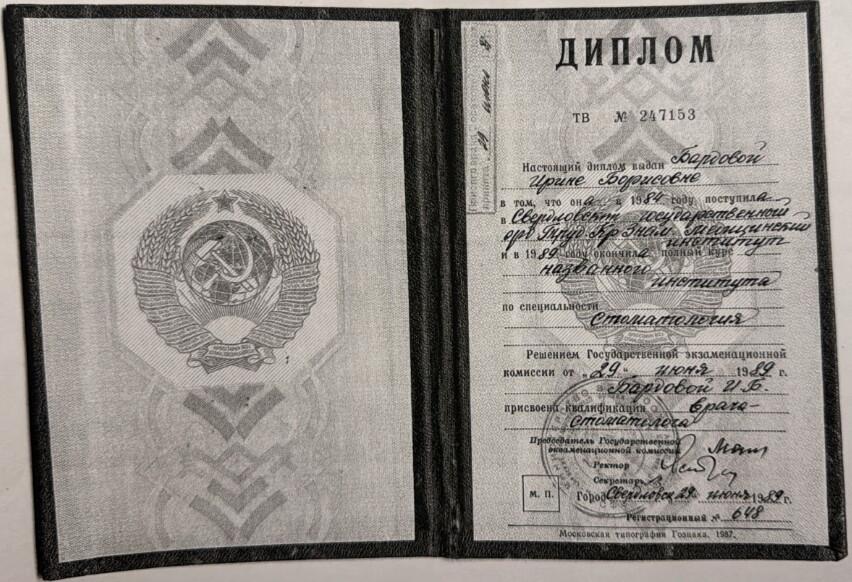 ДИПЛОМ
ТВ № 247153
Настоящий диплом выдан Бардовой
Ирине Борисовне
в том, что она в 1984 году поступила
в Свердловский государственный
орд. Труд. Кр. Знам. медицинский
институт
и в 1989 году окончила полный курс
названного
института
по специальности
Стоматология
Решением Государственной экзаменационной
комиссии от „29“ июня 1989 г.
Бардовой И.Б.
присвоена квалификация врача-
стоматолога
Председатель Государственной
экзаменационной комиссии
Ректор
Секретарь
М. П.
Город Свердловск 29 июня 1989 г.
Регистрационный № 648
Московская типография Гознака. 1987.